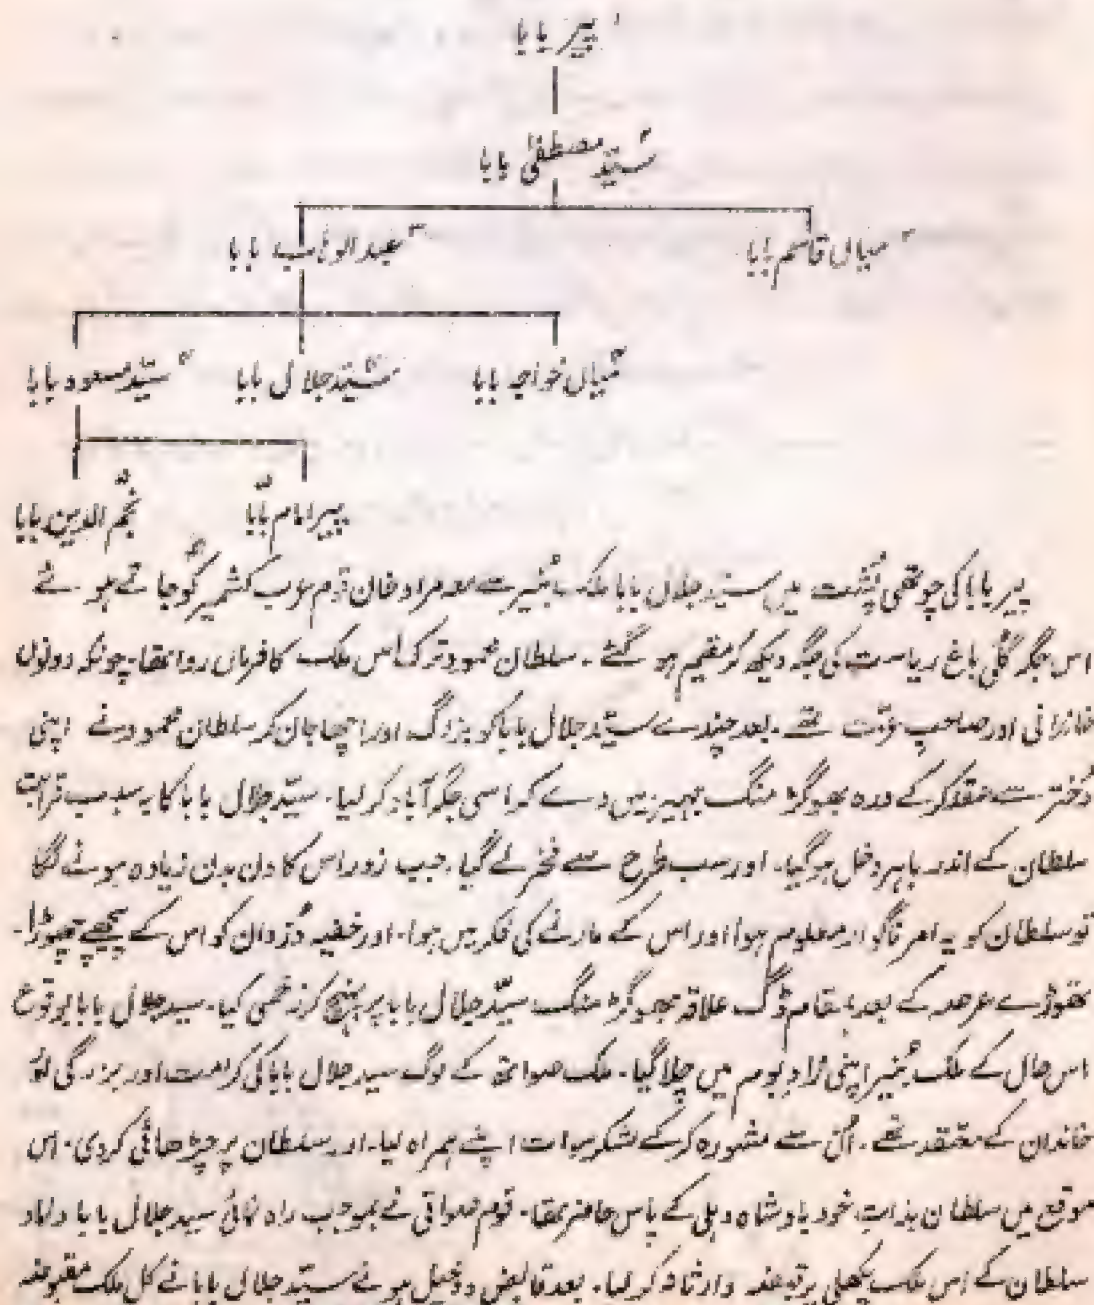 پیر بابا
سیّد مصطفیٰ بابا
میاں قاسم بابا عبدالوہاب بابا
میاں خواجہ بابا سیّد جلال بابا سیّد مسعود بابا
پیر امام بابا نجم الدین بابا
پیر بابا کی چوتھی پُشت میں سید جلال بابا ملک بُنیر سے معہ مراد خان قوم عرب کشمیر کو جاتے ہوئے
اس جگہ گلی باغ ریاست کی جگہ دیکھ کر مقیم ہو گئے۔ سلطان محمود ترک اس ملک کا فرماں روا تھا۔ چونکہ دونوں
خاندانی اور صاحب عزّت تھے۔ بعد چندے سیّد جلال بابا کو بزرگ اور اچھا جان کر سلطان محمود نے اپنی
دُختر سے عقد کر کے درہ بھوگڑ منگ جہیز میں دے کر اسی جگہ آباد کر لیا۔ سیّد جلال بابا کا بہ سبب قرابت
سلطان کے اندر باہر دخل ہو گیا۔ اور سب طرح سے فخر لے گیا۔ جب زور اس کا دن بدن زیادہ ہونے لگا
تو سلطان کو یہ امر ناگوار معلوم ہوا اور اس کے مارنے کی فکر میں ہوا۔ اور خفیہ دُزدان کو اس کے پیچھے چھوڑا۔
تھوڑے عرصہ کے بعد بمقام ڈگ علاقہ بھوگڑ منگ سیّد جلال بابا پر پہنچ کر زخمی کیا۔ سید جلال بابا بوقوع
اس حال کے ملک بُنیر اپنی زاد بوم میں چلا گیا۔ ملک صوات کے لوگ سید جلال بابا کی کرامت اور بزرگی
خاندان کے معتقد تھے۔ اُن سے مشورہ کر کے لشکر سوات اپنے ہمراہ لیا۔ اور سلطان پر چڑھائی کر دی۔ اس
موقع میں سلطان بذاتِ خود بادشاہ دہلی کے پاس حاضر تھا۔ قوم صواتی نے بموجب راہ نمائی سید جلال بابا داماد
سلطان کے اس ملک پکھلی پر قبضہ وارثانہ کر لیا۔ بعد قابض و دخیل ہونے سیّد جلال بابا نے کل ملک مقبوضہ